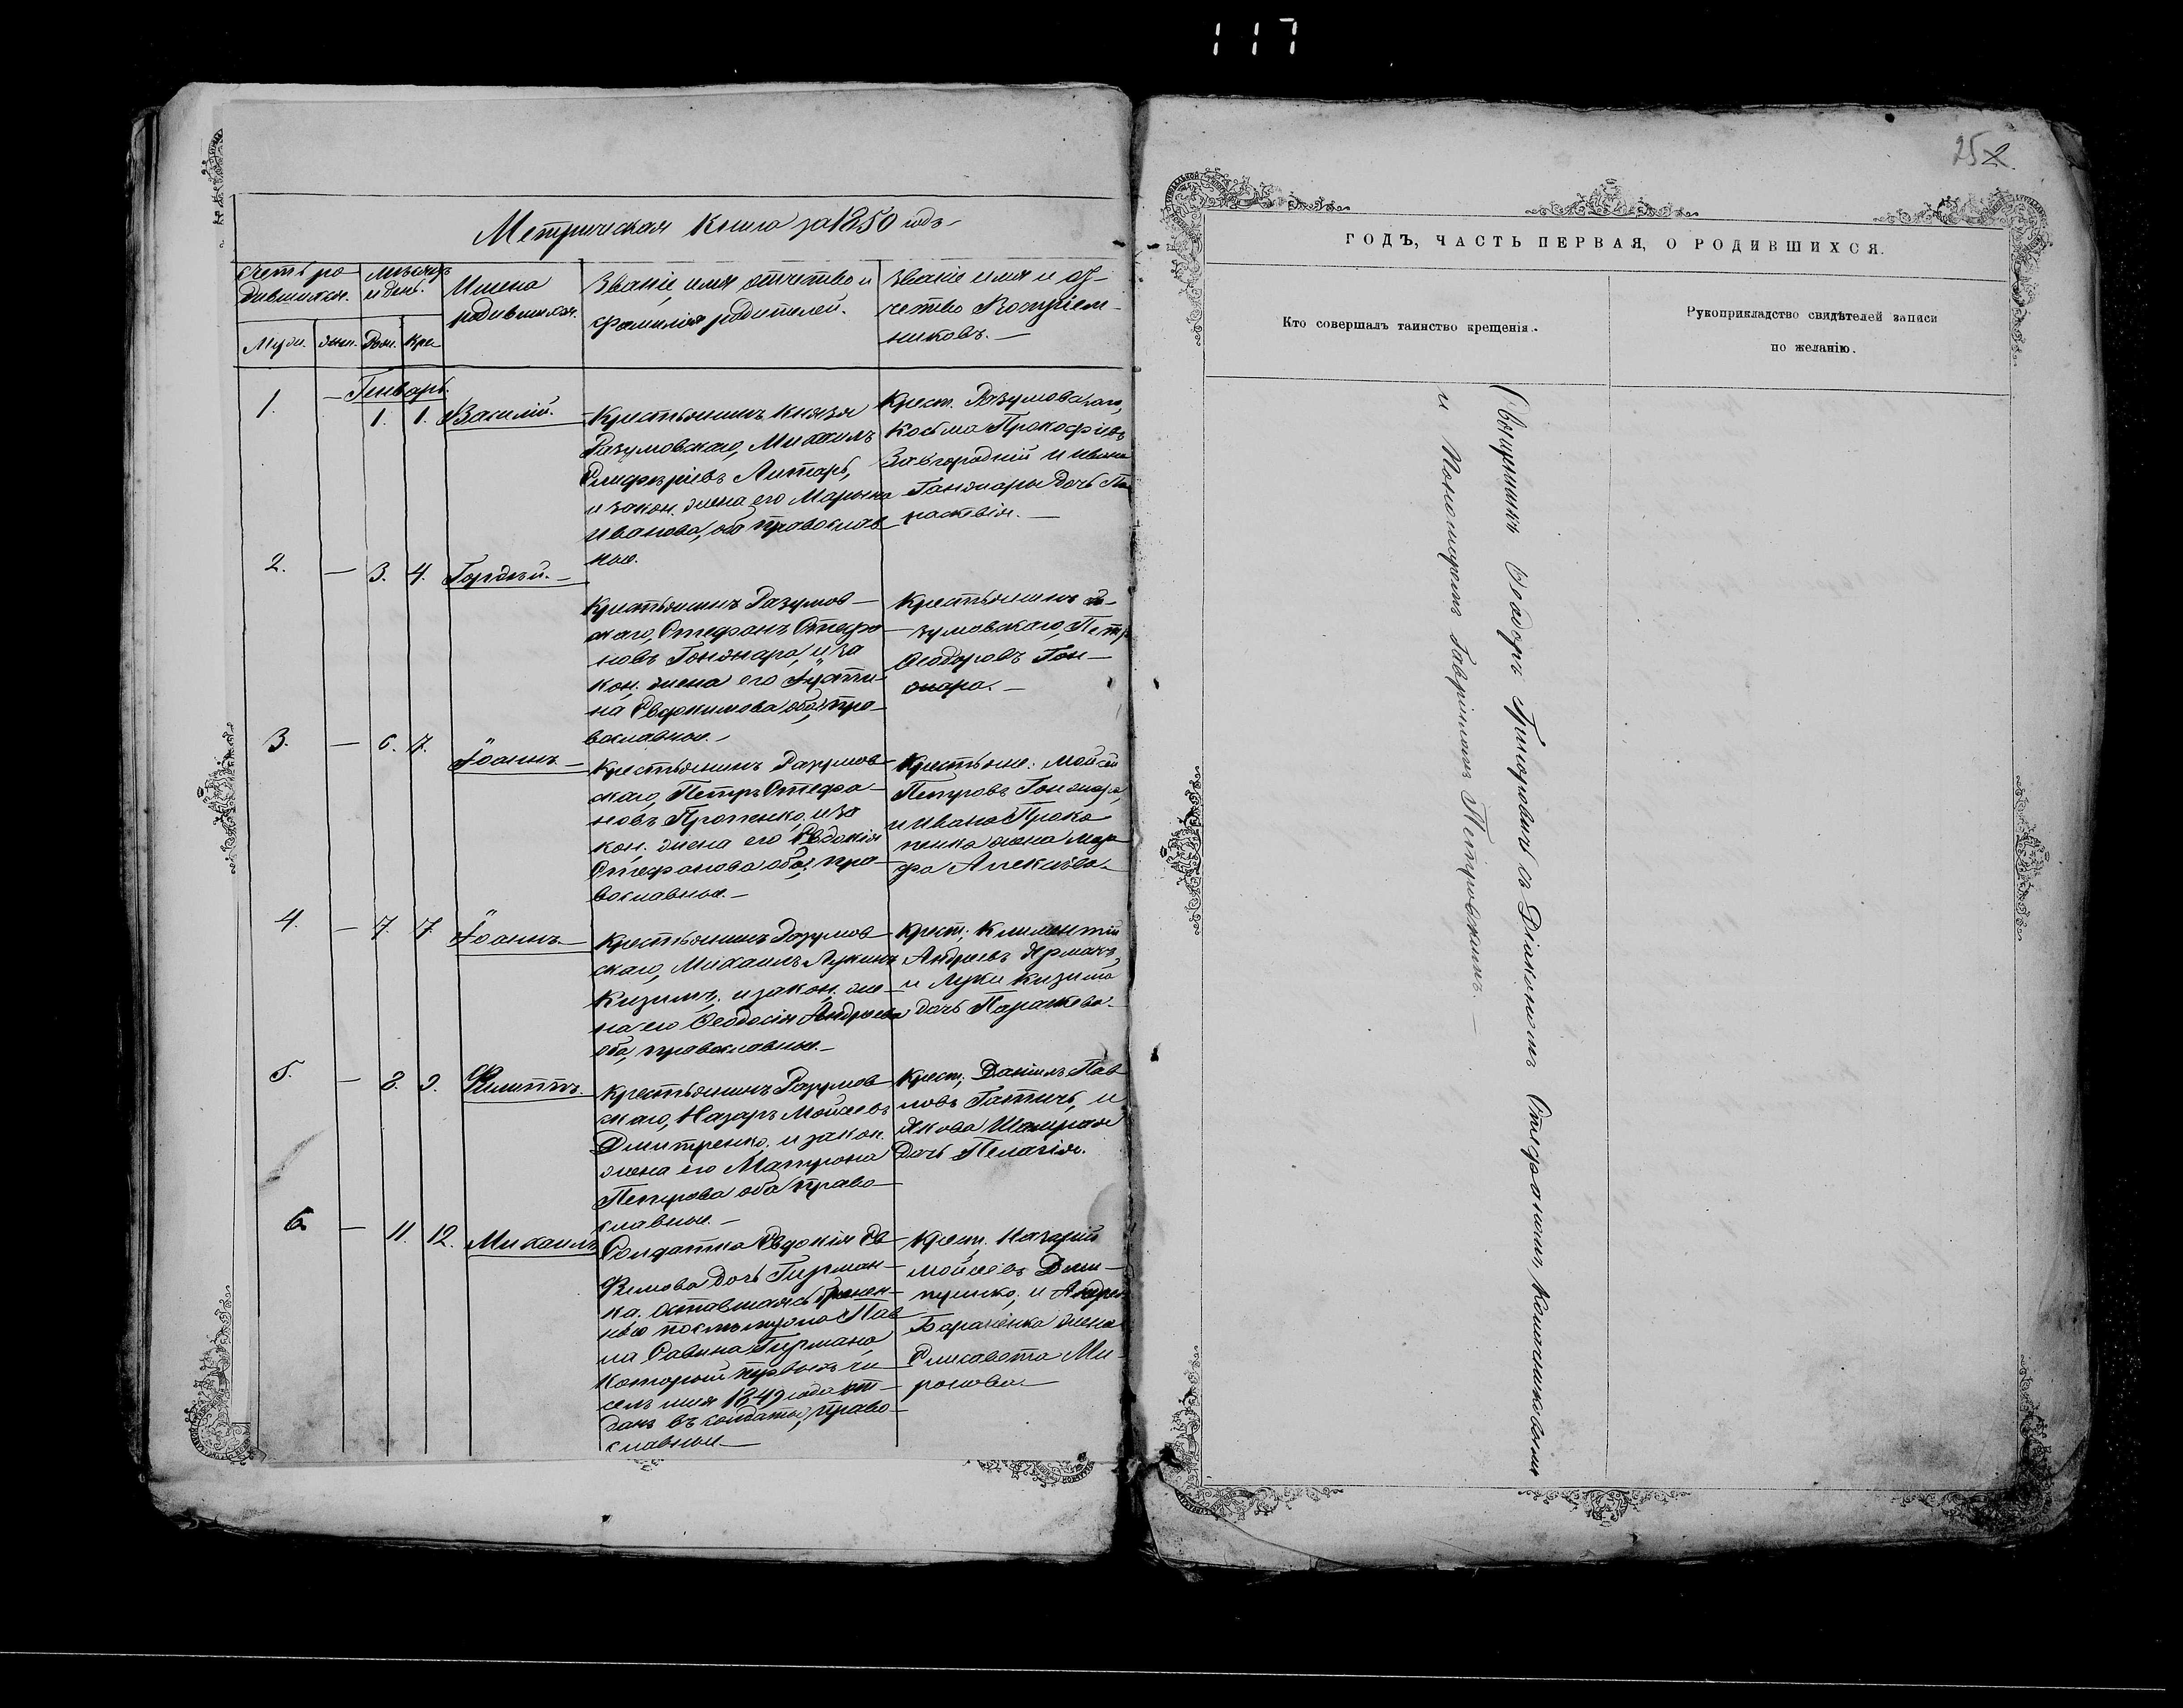 117
25
Метрическая книга за 1850 годъ
Счетъ ро
дившихся.
Муж.
жен.
Мѣсяцъ
и день.
Рож.
Кре
Имена
родившихся.
Званіе, имя отчество и
фамилія родителей.
Званіе имя и от-
чество Воспріем-
никовъ.—
Генварь.
1. — 1. 1. Василій.
Крестьянинъ Князя
Разумовскаго, Михаилъ
Елиферіевъ Литарь,
и закон. жена его Марина
Иванова, оба православ
ные.
Крест. Разумовскаго,
Косьма Прокофіевъ
Завгородній и Ивана
Ганжары дочь
2. — 3. 4. Гордѣй.—
Крестьянинъ Разумов-
скаго, Стефанъ Стефа-
новъ Гонжара, и за
кон. жена его Іусти-
на Евфимова оба пра-
вославные.—
Крестьянинъ
зумовскаго, Петръ
Ѳеодоровъ Гон-
жара.—
3. — 6. 7. Іоаннъ—
Крестьянинъ Разумов-
скаго, Петръ Стефа-
новъ Проценко, и за
кон. жена его Евдокія
Стефанова оба пра-
вославные.—
Крестьяне: Мойсей
Петровъ Гонжара,
и Ивана Проко
пенка жена Мар
фа Алексіева.
4. — 7. 7. Іоаннъ—
Крестьянинъ Разумов-
скаго, Михаилъ Лукинъ
Кизимъ, и закон. же-
на его Ѳеодосія Андреева
оба, православные.—
Крест. Климентій
Андреевъ Ярмакъ,
и Луки Кизима
дочь Параскева.
5. — 8. 9. Филиппъ.
Крестьянинъ Разумов
скаго, Назаръ Мойсеевъ
Дмитренко, и закон.
жена его Матрона
Петрова оба право-
славные.—
Крест. Даніилъ Пав
ловъ Гатичъ, и
Якова
дочь Пелагія.
6. — 11. 12. Михаилъ
Солдатка Евдокія Ев
фимова дочь Гирман-
ка, оставшаясь беремен-
ною послѣ мужа Пав
ла Савина Гирмана,
который первыхъ чи
селъ мая 1849 года от-
данъ въ солдаты, право-
славные.—
Крест. Назарій
Мойсеевъ Дми-
тренко, и Андрея
Бараненка жена
Елисавета Ми-
ронова—
ГОДЪ, ЧАСТЬ ПЕРВАЯ, О РОДИВШИХСЯ.
Кто совершалъ таинство крещенія.
Рукоприкладство свидѣтелей записи
по желанію.
Священникъ Ѳеодоръ Григоровичъ съ Діакономъ Стефаномъ
и Пономаремъ Гавріиломъ Петровскимъ.—